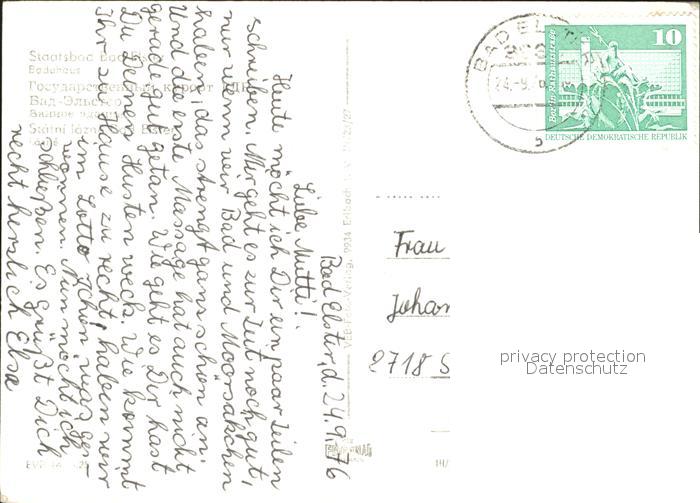 Bad Elster, d. 24.9.76
Liebe Mutti!
Heute möcht ich Dir ein paar Zeilen
schreiben. Mir geht es zur Zeit noch gut,
nur wenn wir Bad und Moorsäkchen
haben, das strengt ganz schön an.
Und die erste Massage hat auch nicht
gerade gut getan. Wie geht es Dir hast
Du Deinen Husten weck. Wie kommt
Ihr zu Hause zu recht, haben wir
im Lotto schon was ge-
wonnen. Nun möcht ich
schließen. Es grüßt Dich
recht herzlich Elsa
Staatsbad Bad
Badehaus
Государственный курорт
Бад-Эльстер
Státní lázně Bad Elster
Lázně
BAD EL
24.-9.
10
Berlin, Rathausstraße
DEUTSCHE DEMOKRATISCHE REPUBLIK
Frau
Johan
2718 S
privacy protection
Datenschutz